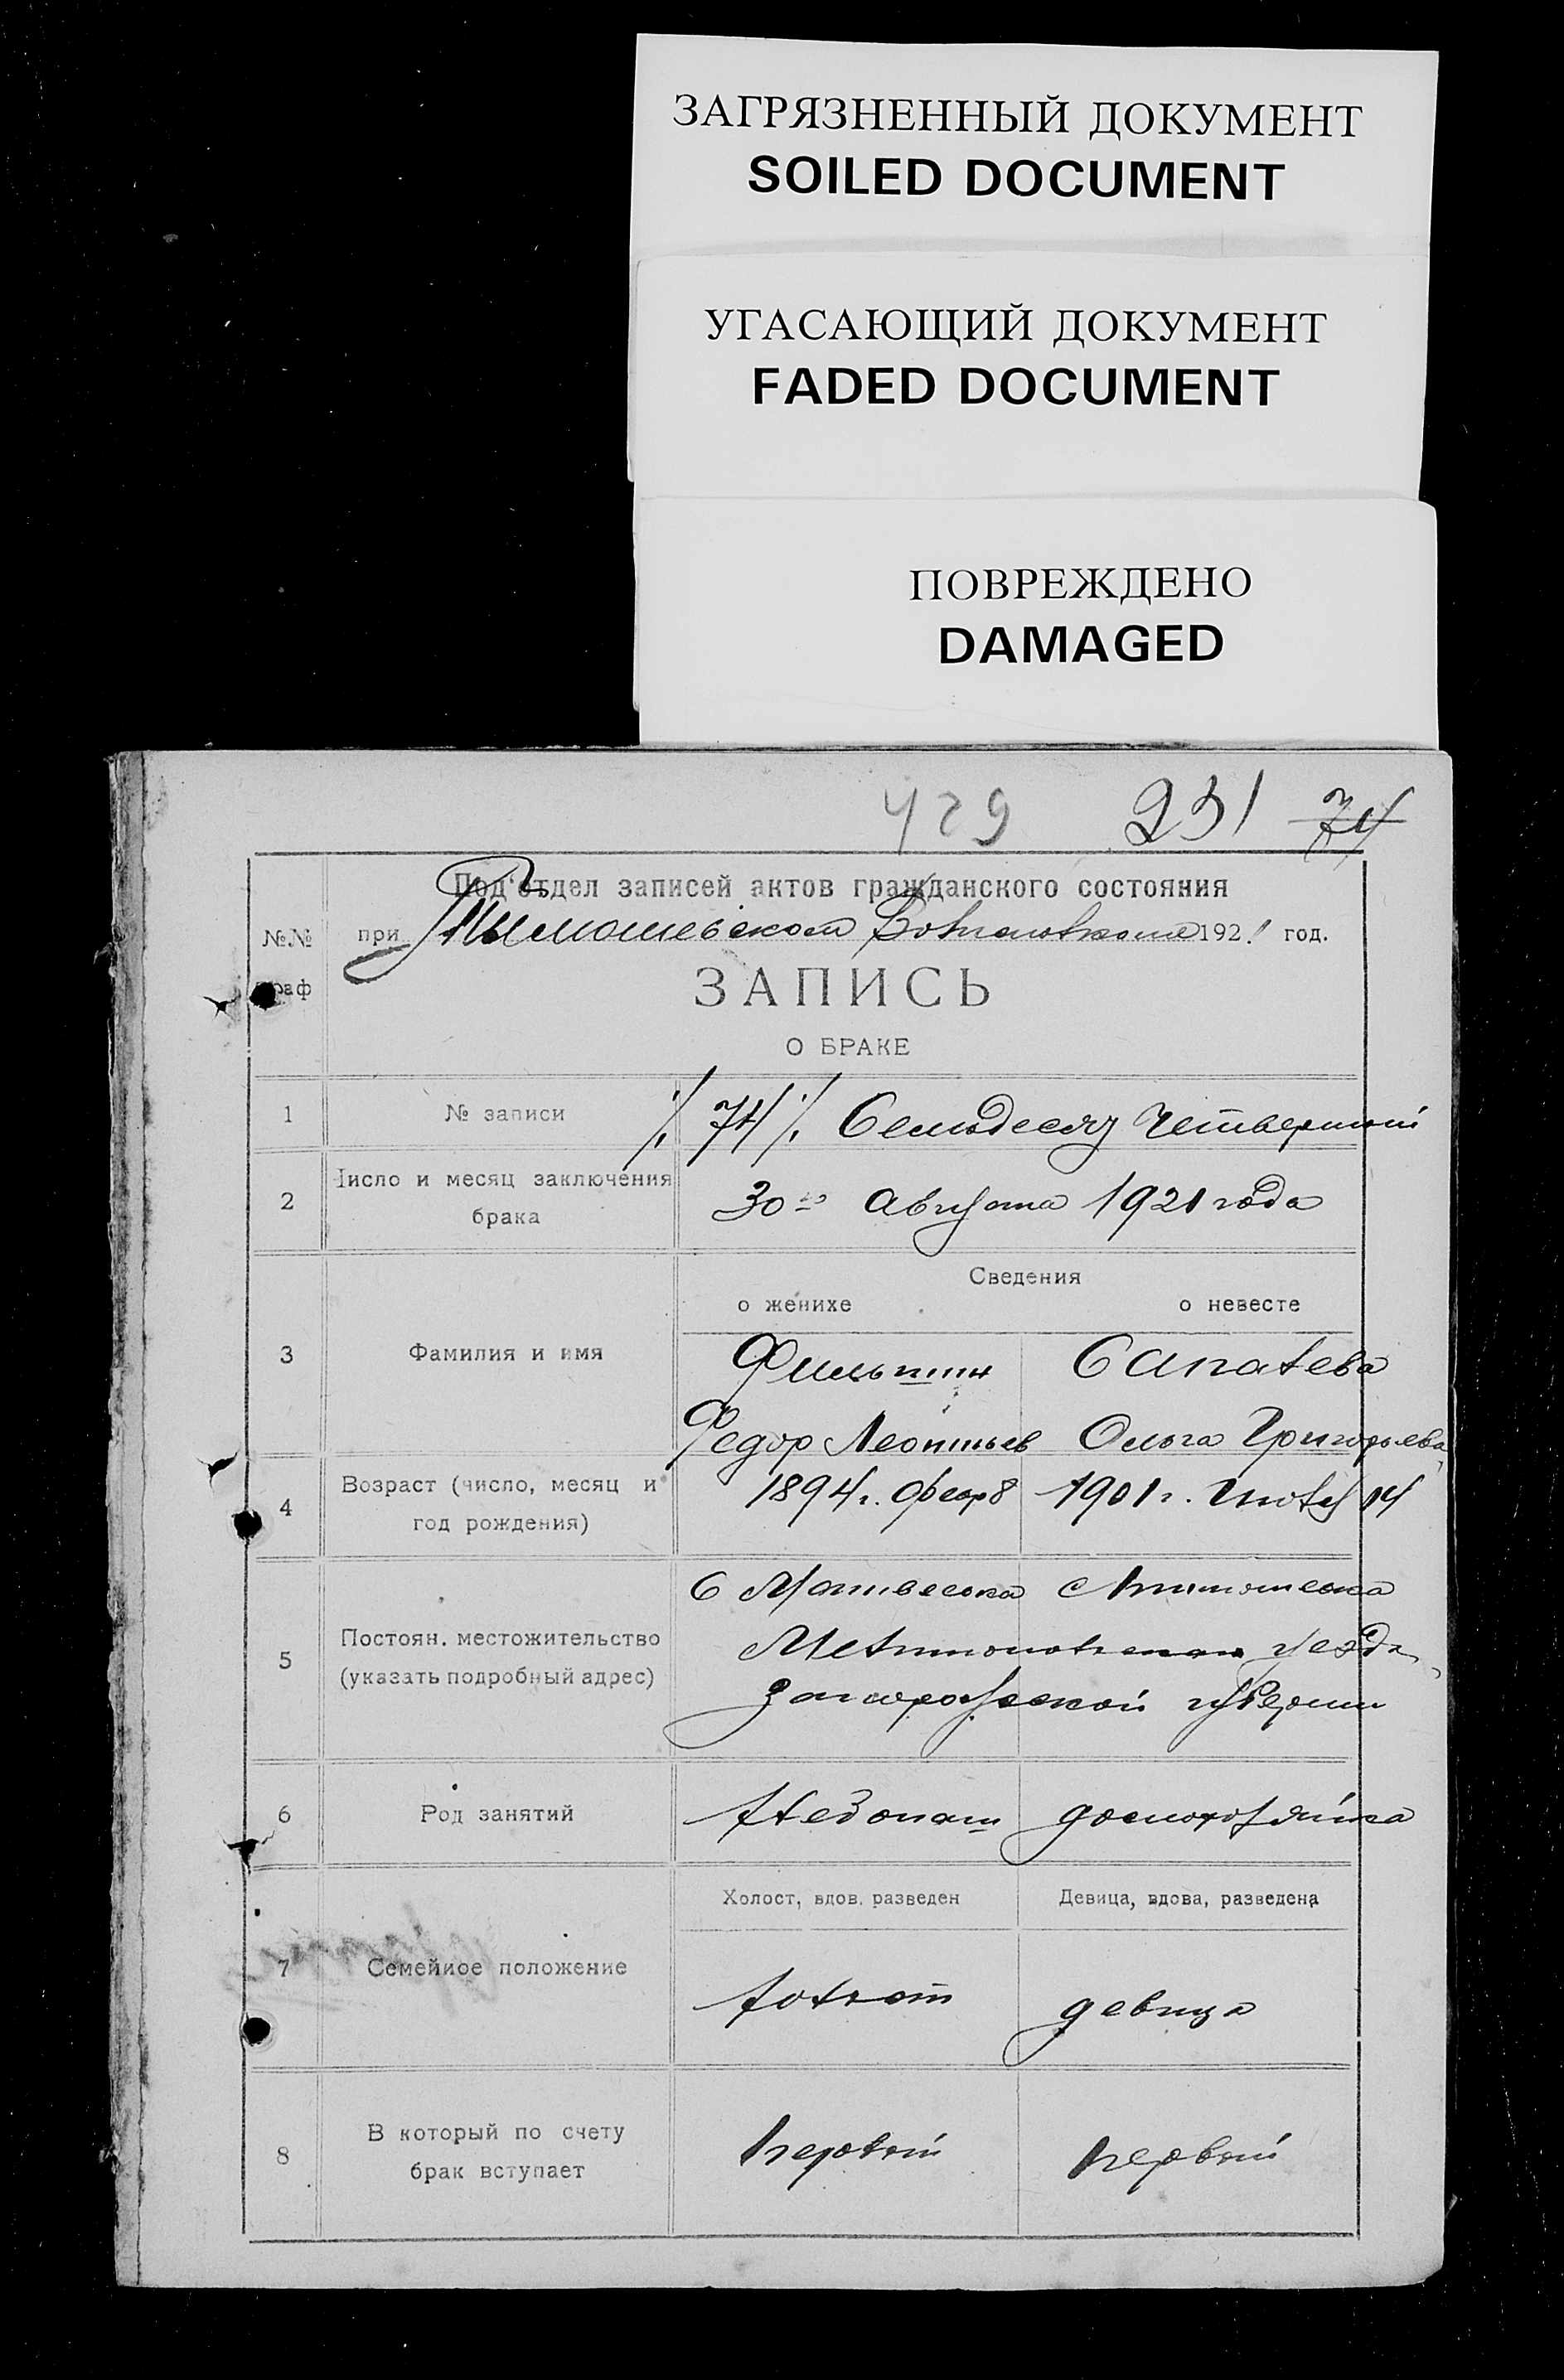 ЗАГРЯЗНЕННЫЙ ДОКУМЕНТ
SOILED DOCUMENT
УГАСАЮЩИЙ ДОКУМЕНТ
FADED DOCUMENT
ПОВРЕЖДЕНО
DAMAGED
429 231 74
Под'отдел записей актов гражданского состояния
№№ при Тимошевском Волисполкоме 1921 год.
граф
ЗАПИСЬ
О БРАКЕ
1 № записи ·/. 74 ·/. Семьдесят Четвертый
2 Число и месяц заключения брака 30го Августа 1921 года
Сведения
о женихе о невесте
3 Фамилия и имя
Филыпин Сапалева
Федор Леонтьев Ольга Григорьева
4 Возраст (число, месяц и год рождения)
1894 г. февр 8 1901 г. Июля 14
5 Постоян. местожительство
(указать подробный адрес)
С Матвеевка с Тимошевка
Мелитопольского уезда
Запорожской губернии
6 Род занятий
Хлебопаш домохозяйка
Холост, вдов. разведен Девица, вдова, разведена
7 Семейное положение
холост девица
8 В который по счету
брак вступает
первый первый